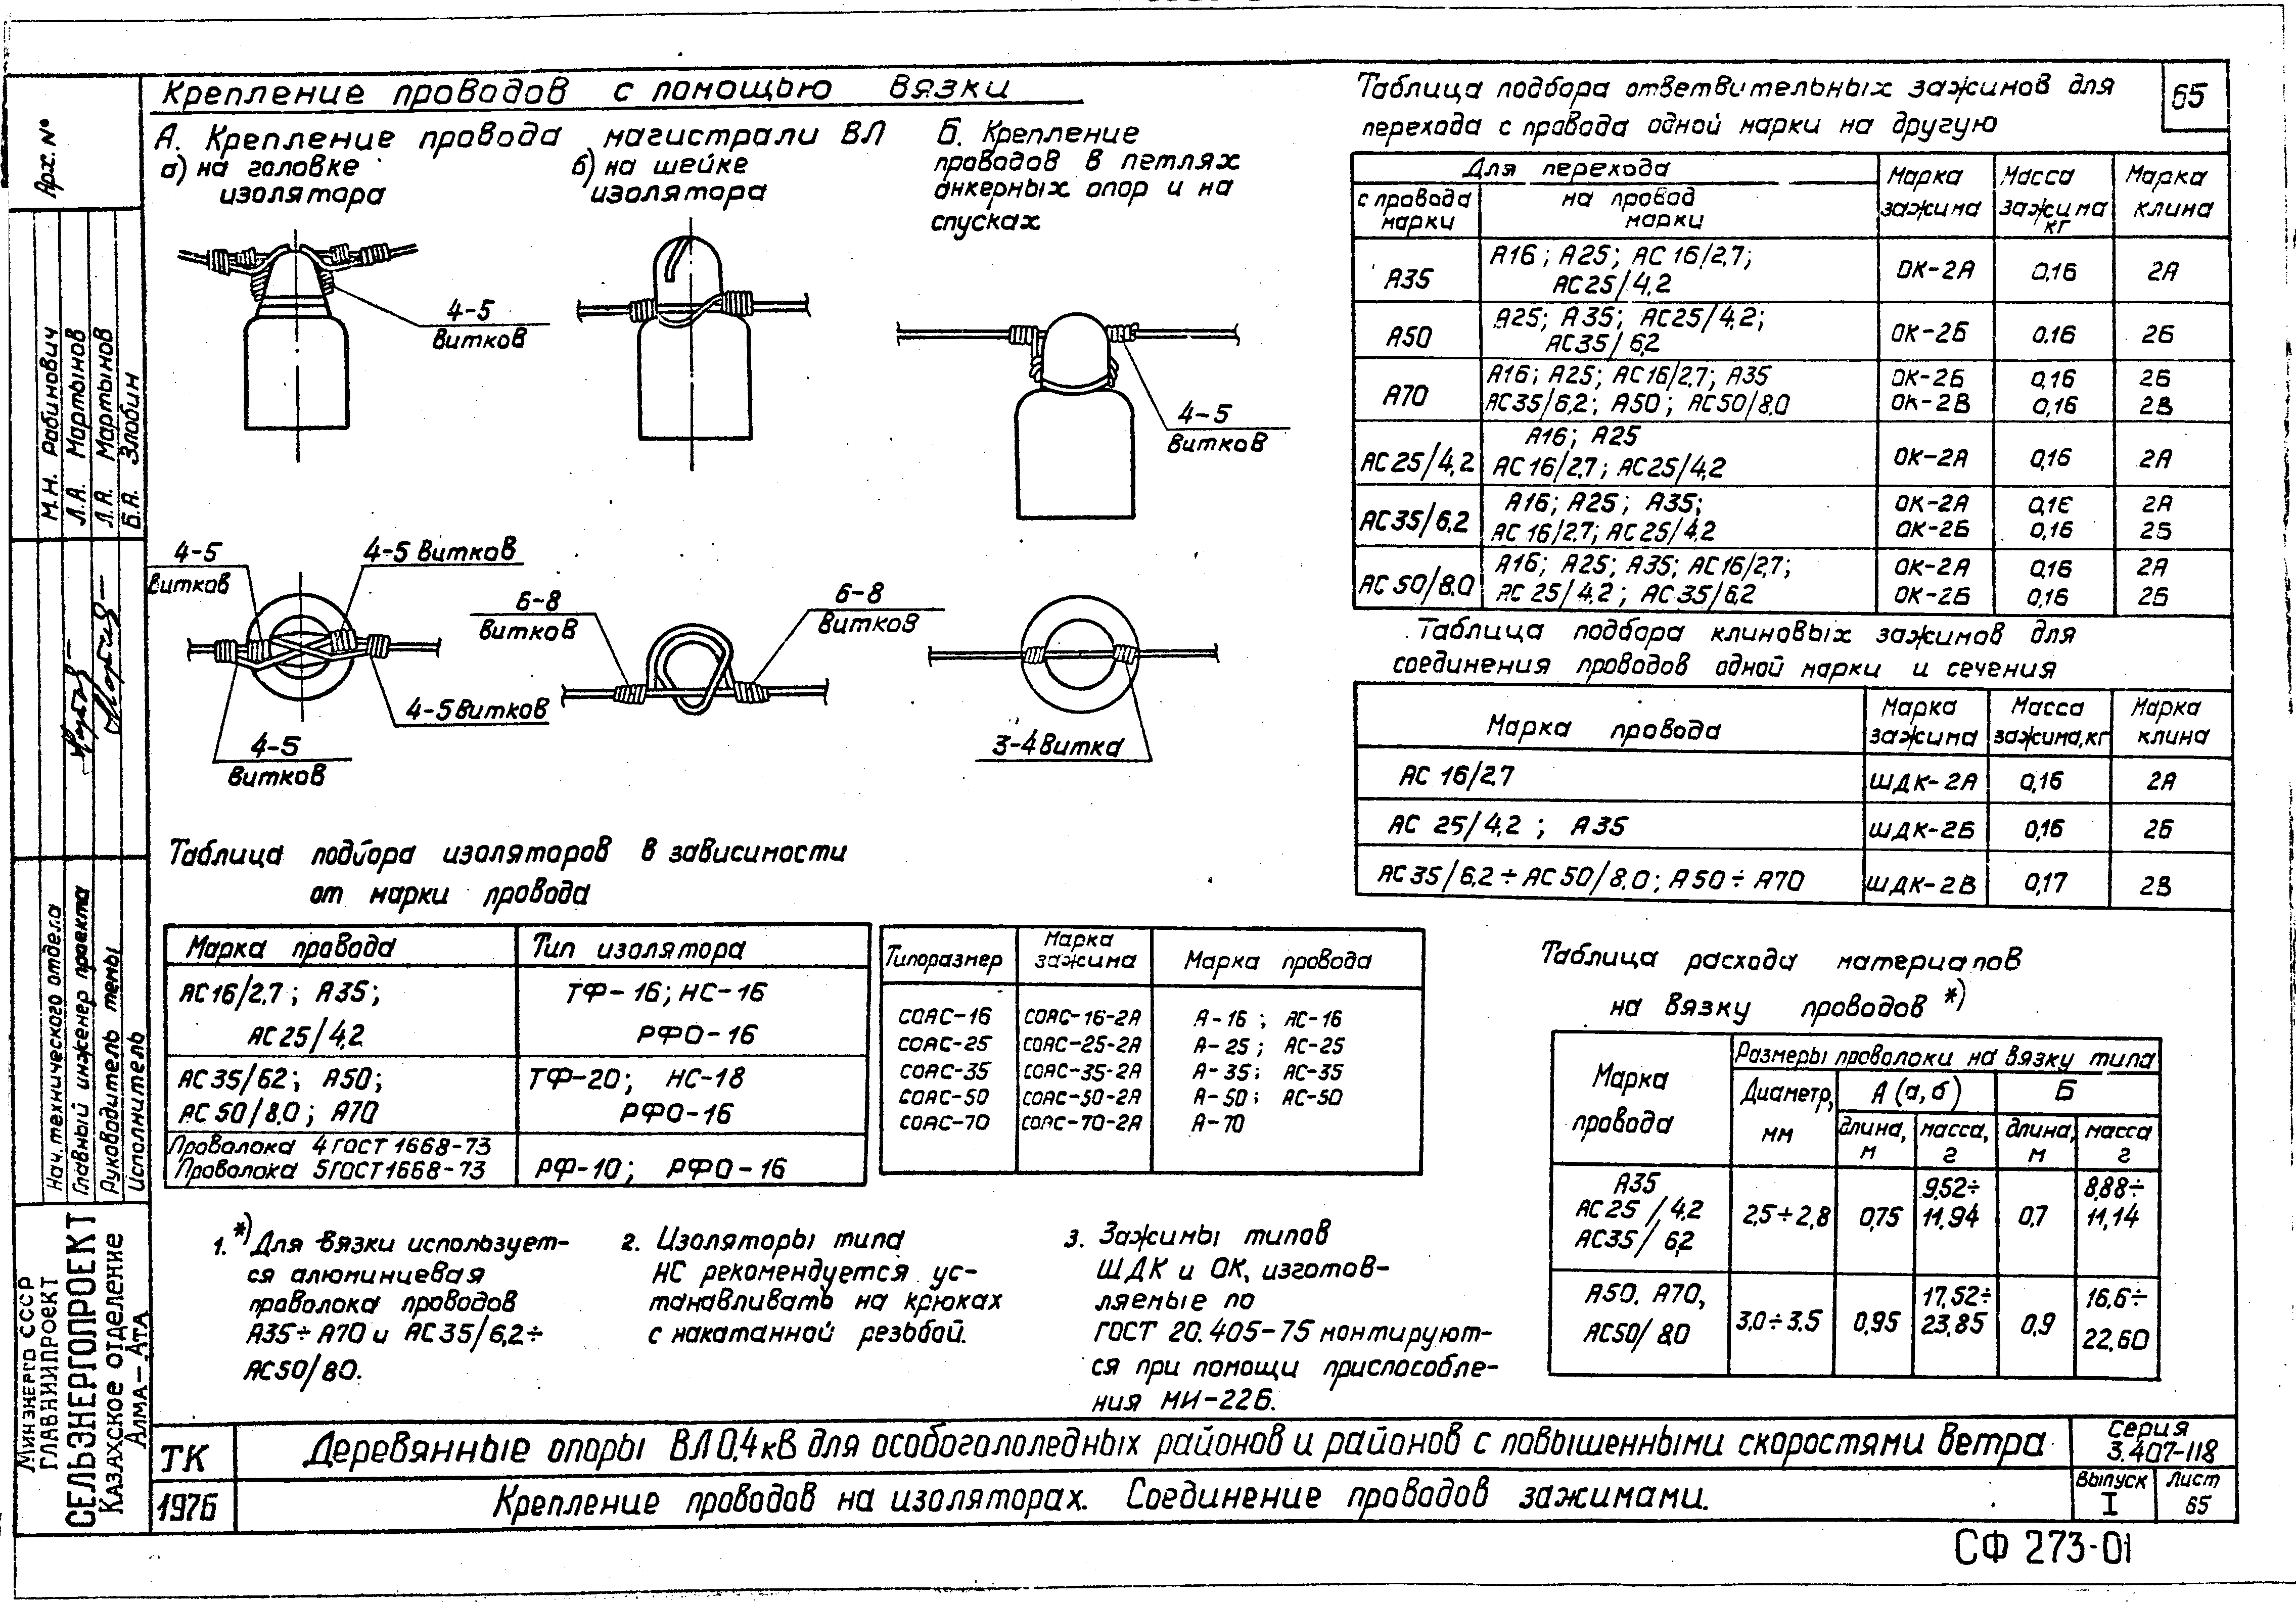 65
Крепление проводов с помощью вязки
А. Крепление провода магистрали ВЛ
а) на головке
изолятора
б) на шейке
изолятора
Б. Крепление
проводов в петлях
анкерных опор и на
спусках
4-5
витков
4-5
витков
4-5
витков
4-5 витков
4-5 витков
4-5
витков
6-8
витков
6-8
витков
3-4 витка
Таблица подбора ответвительных зажимов для
перехода с провода одной марки на другую
Для перехода
с провода марки | на провод марки | Марка зажима | Масса зажима кг | Марка клина
А35 | А16; А25; АС16/2,7; АС25/4,2 | ОК-2А | 0,16 | 2А
А50 | А25; А35; АС25/4,2; АС35/6,2 | ОК-2Б | 0.16 | 2Б
А70 | А16; А25; АС16/2,7; А35 | ОК-2Б | 0,16 | 2Б
АС35/6,2; А50; АС50/8,0 | ОК-2В | 0,16 | 2В
АС25/4,2 | А16; А25 АС16/2,7; АС25/4,2 | ОК-2А | 0,16 | 2А
АС35/6,2 | А16; А25; А35; | ОК-2А | 0,16 | 2А
АС16/2,7; АС25/4,2 | ОК-2Б | 0,16 | 2Б
АС50/8,0 | А16; А25; А35; АС16/2,7; | ОК-2А | 0,16 | 2А
АС25/4,2; АС35/6,2 | ОК-2Б | 0,16 | 2Б
Таблица подбора клиновых зажимов для
соединения проводов одной марки и сечения
Марка провода | Марка зажима | Масса зажима, кг | Марка клина
АС 16/2,7 | ШДК-2А | 0,16 | 2А
АС 25/4,2; А35 | ШДК-2Б | 0,16 | 2Б
АС35/6,2÷АС50/8,0; А50÷А70 | ШДК-2В | 0,17 | 2В
Таблица подбора изоляторов в зависимости
от марки провода
Марка провода | Тип изолятора
АС16/2,7; А35; | ТФ-16; НС-16
АС25/4,2 | РФО-16
АС35/62; А50; | ТФ-20; НС-18
АС50/8,0; А70 | РФО-16
Проволока 4 ГОСТ 1668-73
Проволока 5 ГОСТ 1668-73 | РФ-10; РФО-16
Типоразмер | Марка зажима | Марка провода
СОАС-16 | СОАС-16-2А | А-16; АС-16
СОАС-25 | СОАС-25-2А | А-25; АС-25
СОАС-35 | СОАС-35-2А | А-35; АС-35
СОАС-50 | СОАС-50-2А | А-50; АС-50
СОАС-70 | СОАС-70-2А | А-70
Таблица расхода материалов
на вязку проводов *)
Марка провода | Размеры проволоки на вязку типа
Диаметр, мм | А (а, б) | Б
длина, м | масса, г | длина, м | масса г
А35 АС25/4,2 АС35/6,2 | 2,5÷2,8 | 0,75 | 9,52÷11,94 | 0,7 | 8,88÷11,14
А50, А70, АС50/8,0 | 3,0÷3.5 | 0,95 | 17,52÷23,85 | 0,9 | 16,6÷22,60
1. *) Для вязки использует-
ся алюминиевая
проволока проводов
А35÷А70 и АС35/6,2÷
АС50/80.
2. Изоляторы типа
НС рекомендуется ус-
танавливать на крюках
с накатанной резьбой.
3. Зажимы типов
ШДК и ОК, изготов-
ляемые по
ГОСТ 20.405-75 монтируют-
ся при помощи приспособле-
ния МИ-226.
Арх. №
М.Н. Рабинович
Л.А. Мартынов
Л.А. Мартынов
Б.А. Злобин
Нач. технического отдела
Главный инженер проекта
Руководитель темы
Исполнитель
Минэнерго СССР
ГЛАВНИИПРОЕКТ
СЕЛЬЭНЕРГОПРОЕКТ
Казахское отделение
Алма-Ата
ТК
1976
Деревянные опоры ВЛ 0,4 кВ для особогололедных районов и районов с повышенными скоростями ветра
Крепление проводов на изоляторах. Соединение проводов зажимами.
Серия
3.407-118
Выпуск
I
Лист
65
СФ 273-01